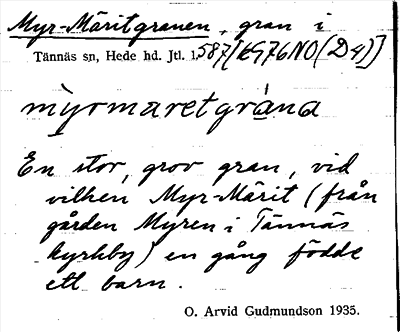 Myr-Märitgranen, gran i
Tännäs sn, Hede hd. Jtl. 1.587 [EG76NO(D4)]
myrmaretgràna
En stor, grov gran, vid
vilken Myr-Märit (från
gården Myren i Tännäs
kyrkby) en gång födde
ett barn.
O. Arvid Gudmundson 1935.